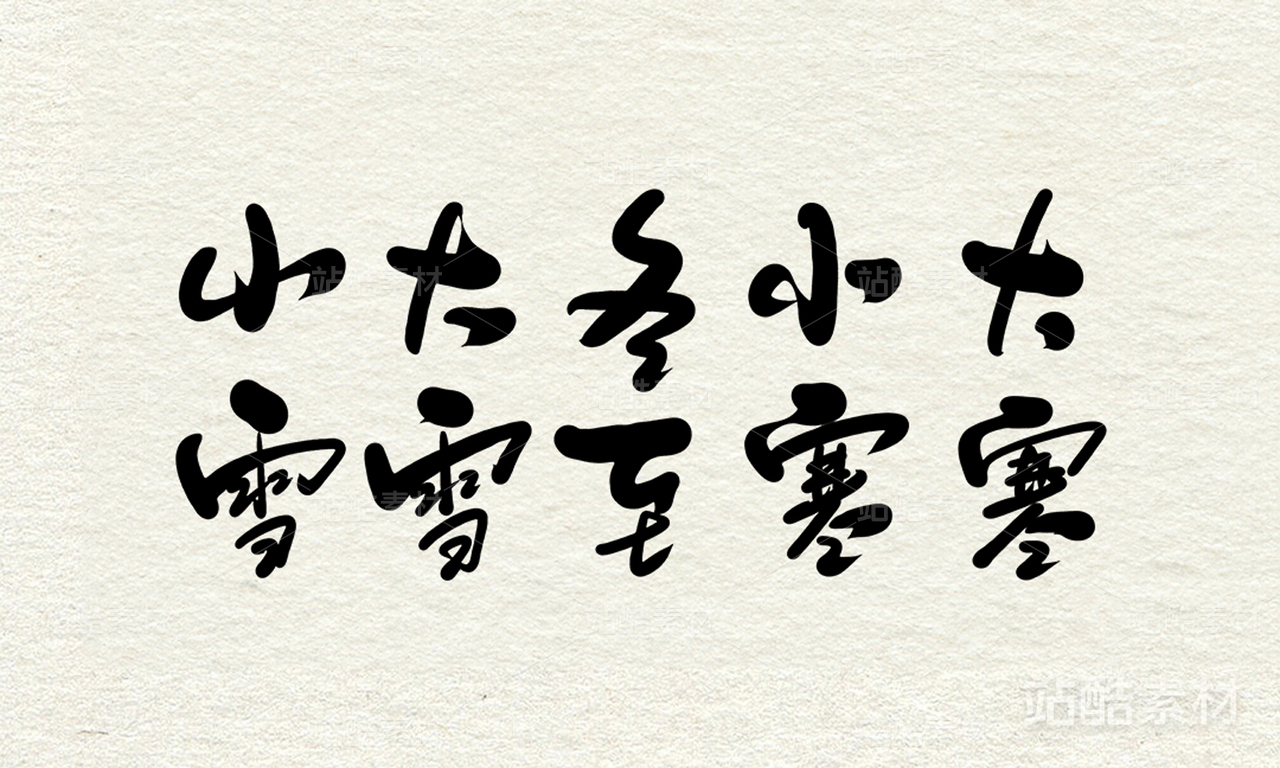 小雪
大雪
冬至
小寒
大寒
站酷素材